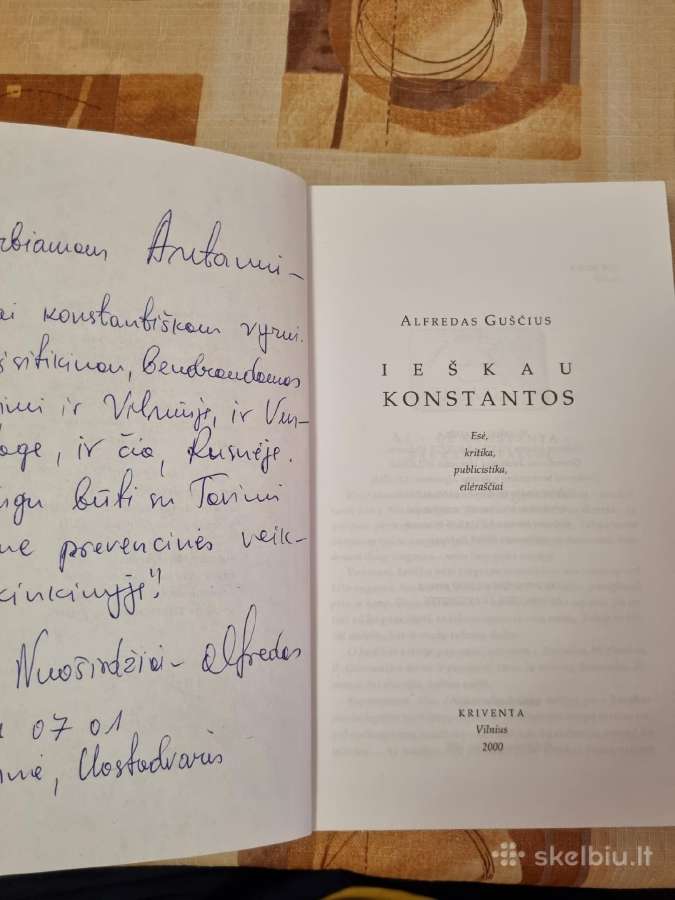 rbiamam Antanui –
ai konstantiškam vyrui.
įsitikinau, bendraudamas
imi ir Vilniuje, ir Ven-
oge, ir čia, Rusnėje.
ngu būti su Tavimi
ne prevencinės veik-
kinkinyje"!
Nuoširdžiai – Alfredas
07 01
nė, Uostadvaris
ALFREDAS GUŠČIUS
IEŠKAU
KONSTANTOS
Esė,
kritika,
publicistika,
eilėraščiai
KRIVENTA
Vilnius
2000
skelbiu.lt